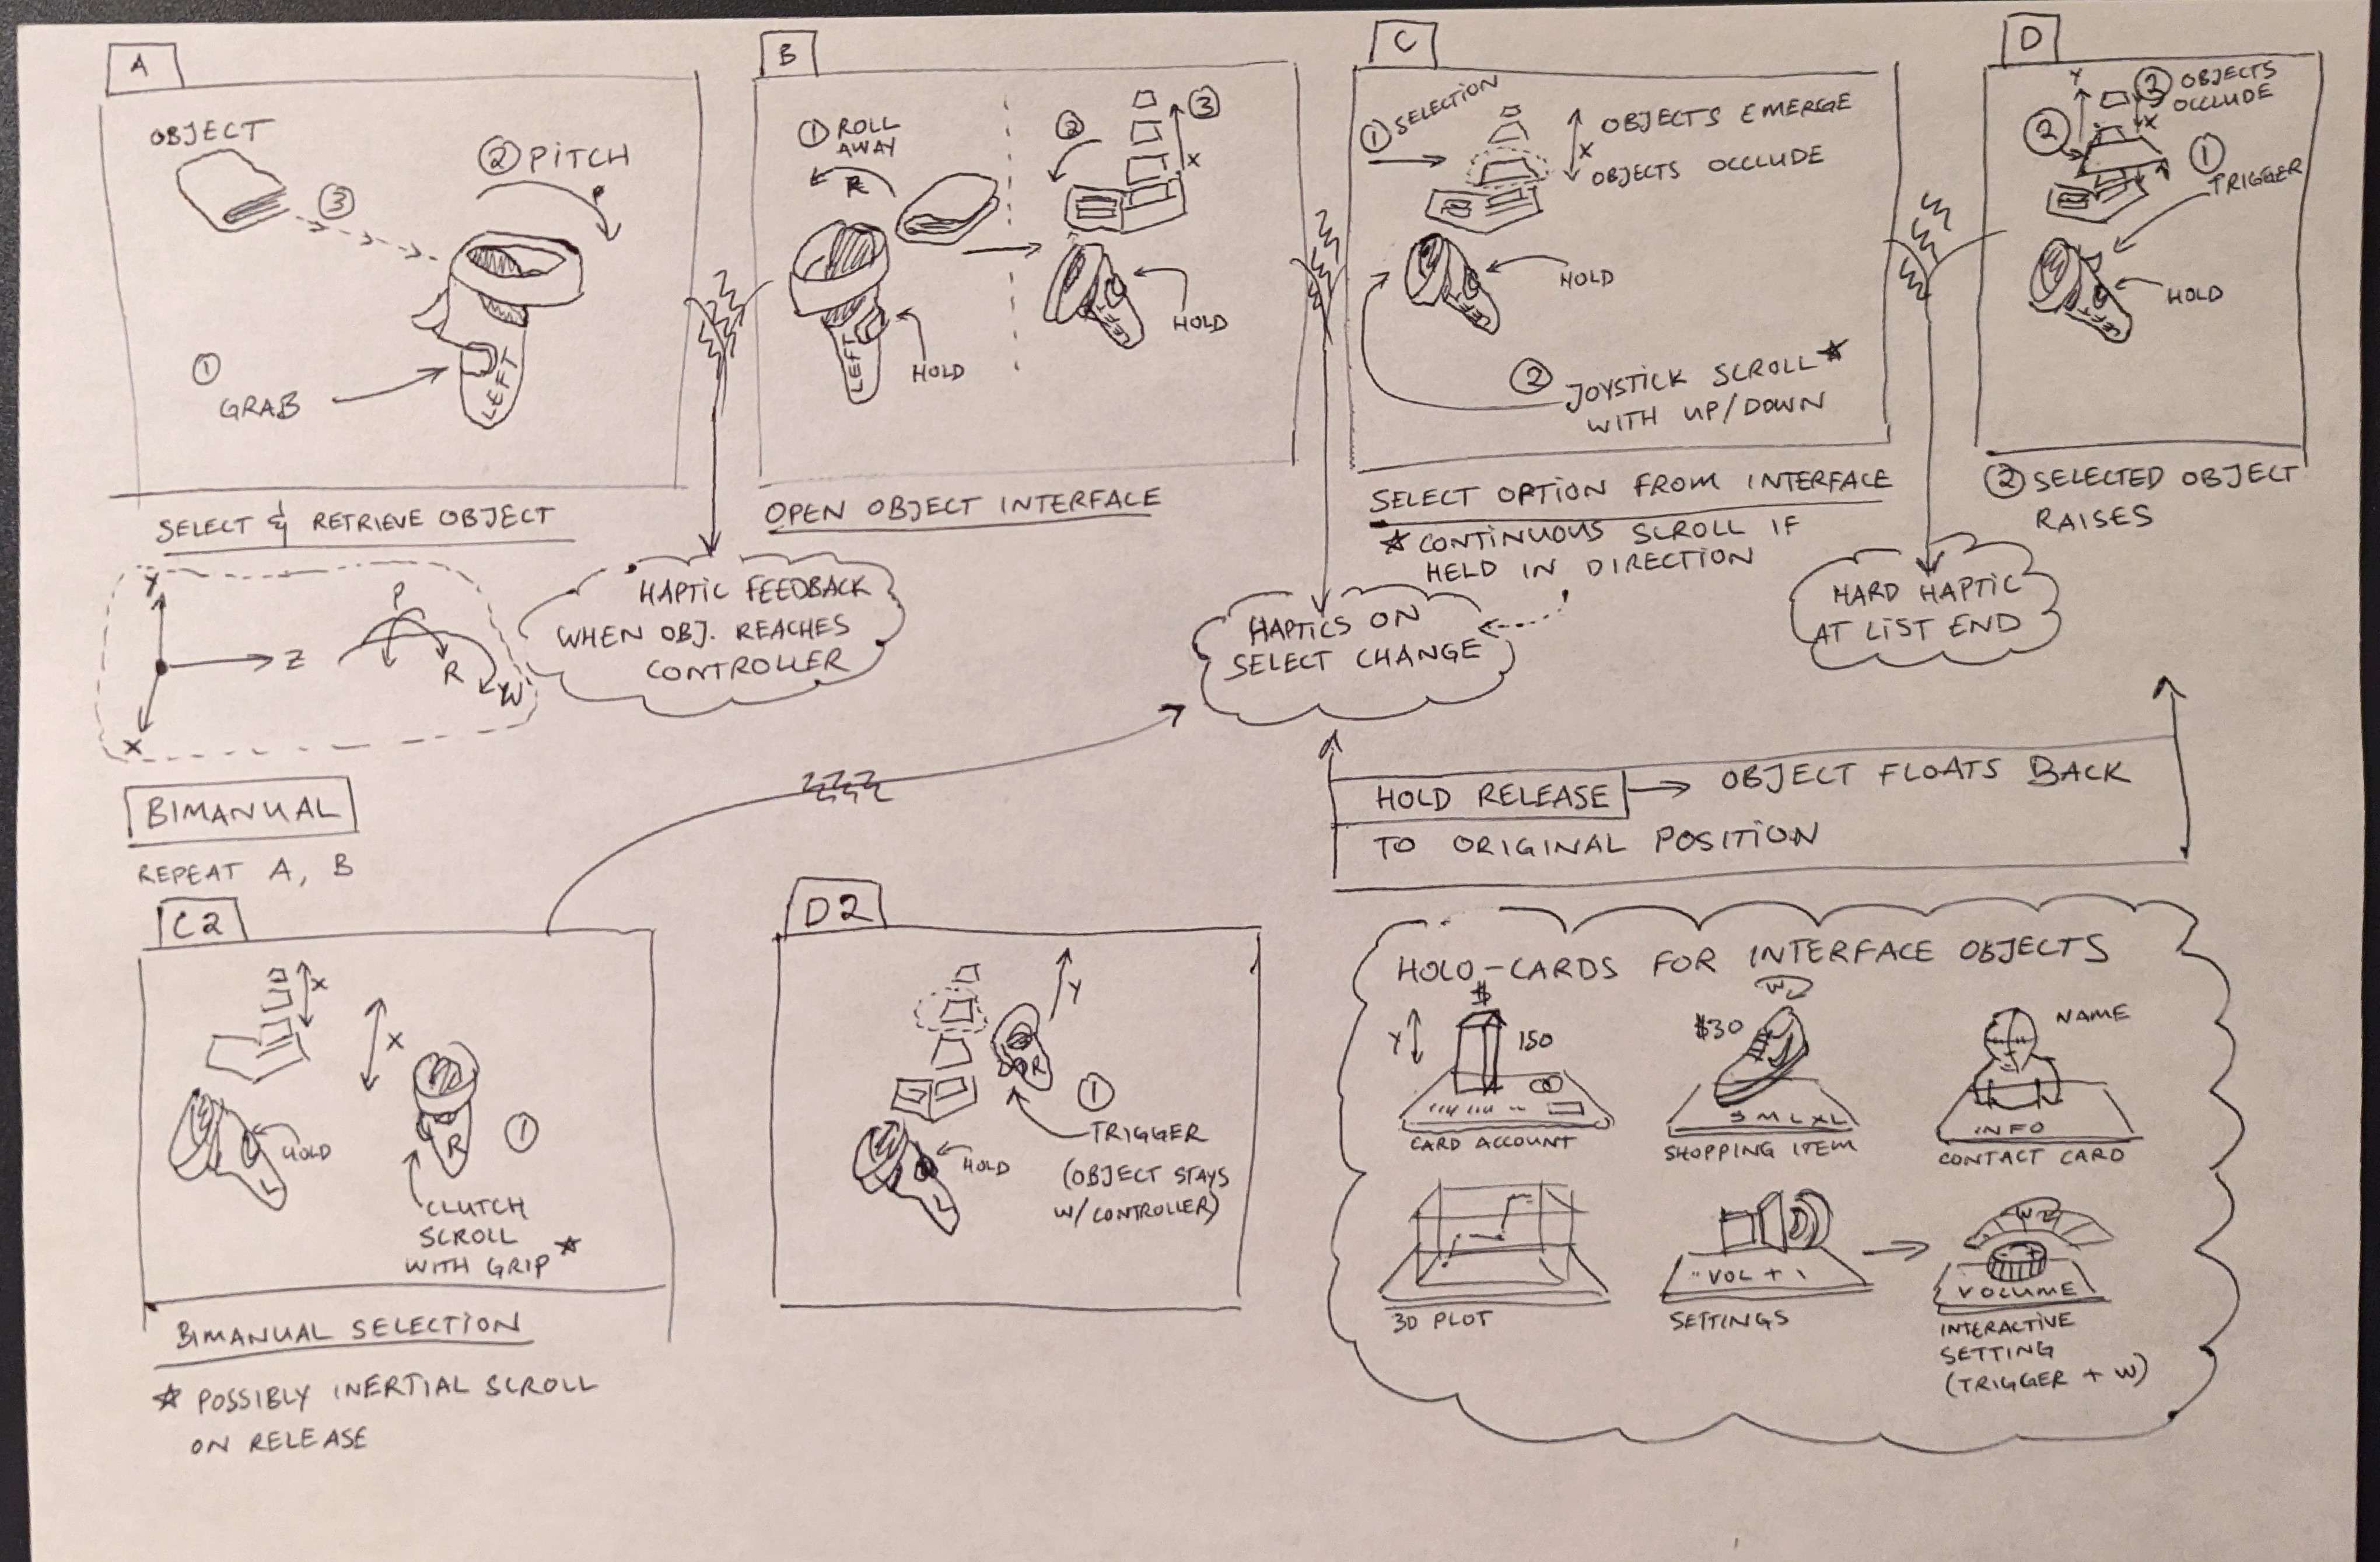 A
OBJECT
② PITCH
P
③
①
GRAB
LEFT
SELECT & RETRIEVE OBJECT
B
① ROLL
AWAY
R
LEFT
HOLD
②
③
X
LEFT
HOLD
OPEN OBJECT INTERFACE
C
① SELECTION
OBJECTS EMERGE
X
OBJECTS OCCLUDE
HOLD
LEFT
② JOYSTICK SCROLL ★
WITH UP/DOWN
SELECT OPTION FROM INTERFACE
★ CONTINUOUS SCROLL IF
HELD IN DIRECTION
D
Y
② OBJECTS
OCCLUDE
X
②
①
TRIGGER
HOLD
LEFT
② SELECTED OBJECT
RAISES
Y
Z
X
P
R
W
HAPTIC FEEDBACK
WHEN OBJ. REACHES
CONTROLLER
HAPTICS ON
SELECT CHANGE
HARD HAPTIC
AT LIST END
BIMANUAL
REPEAT A, B
HOLD RELEASE → OBJECT FLOATS BACK
TO ORIGINAL POSITION
C2
X
X
HOLD
L
R
①
CLUTCH
SCROLL
WITH GRIP ★
BIMANUAL SELECTION
★ POSSIBLY INERTIAL SCROLL
ON RELEASE
D2
Y
R
①
TRIGGER
(OBJECT STAYS
W/ CONTROLLER)
HOLD
L
HOLO-CARDS FOR INTERFACE OBJECTS
$
Y
150
CARD ACCOUNT
W
$30
S M L XL
SHOPPING ITEM
NAME
INFO
CONTACT CARD
3D PLOT
VOL +
SETTINGS
W
- +
VOLUME
INTERACTIVE
SETTING
(TRIGGER + W)